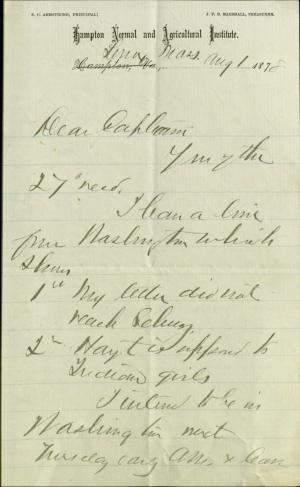 S. C. ARMSTRONG, PRINCIPAL.
J. F. B. MARSHALL, TREASURER.
Hampton Normal and Agricultural Institute.
Lenox, Mass. Aug 1 1878
Hampton, Va.,
Dear Captain
Yrs of the
27th recd.
I have a line
from Washington which
shows
1st My letter did not
reach Schurz
2nd Hayt is opposed to
Indian girls
I intend to be in
Washington next
Tuesday early A.M. & can